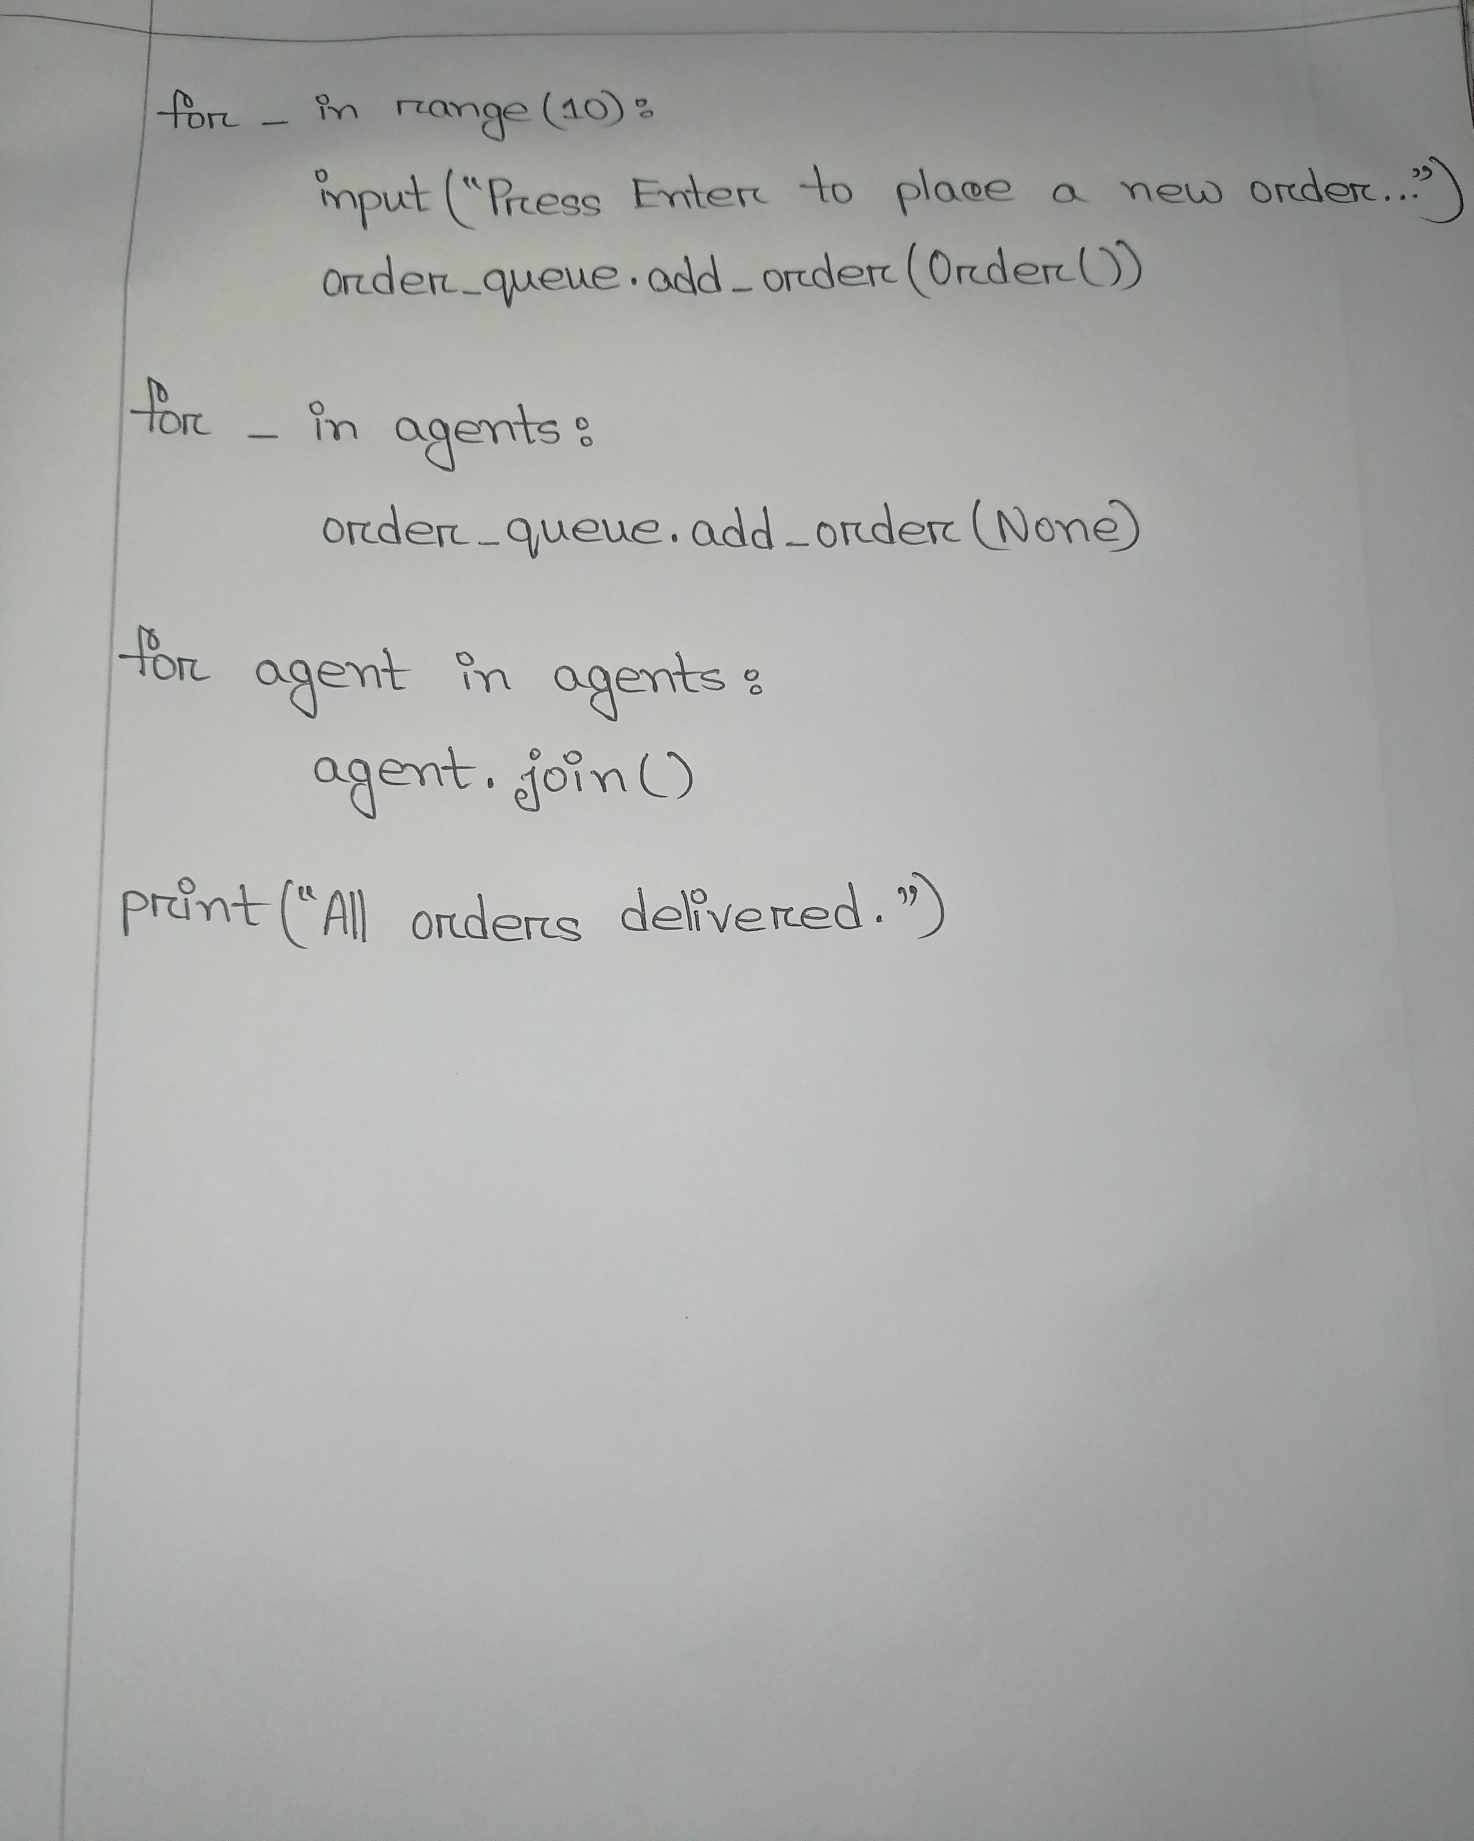 for _ in range(10):
input("Press Enter to place a new order...")
order_queue.add_order(Order())
for _ in agents:
order_queue.add_order(None)
for agent in agents:
agent.join()
print("All orders delivered.")